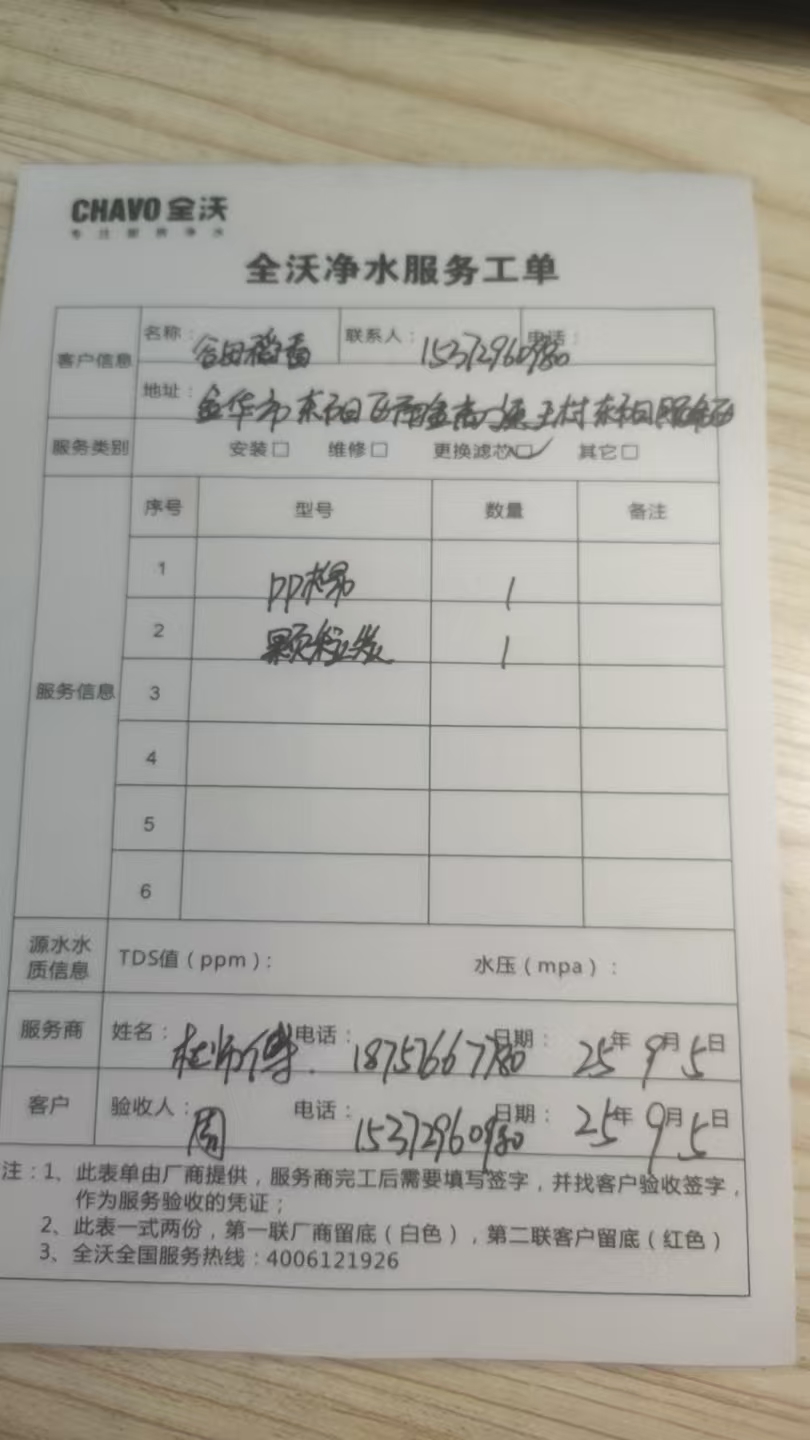 CHAVO 全沃
专注厨房净水
全沃净水服务工单
客户信息
名称: 谷田稻香 联系人: 15372960980 电话:
地址: 金华市东阳 王村东阳服务区
服务类别 安装□ 维修□ 更换滤芯□✓ 其它□
服务信息
序号 型号 数量 备注
1 PP棉 1
2 颗粒炭 1
3
4
5
6
源水水质信息 TDS值(ppm): 水压(mpa):
服务商 姓名: 杜师傅. 电话: 18757667780 日期: 25年9月5日
客户 验收人: 周 电话: 15372960980 日期: 25年9月5日
注:1、此表单由厂商提供,服务商完工后需要填写签字,并找客户验收签字,
作为服务验收的凭证;
2、此表一式两份,第一联厂商留底(白色),第二联客户留底(红色)
3、全沃全国服务热线:4006121926